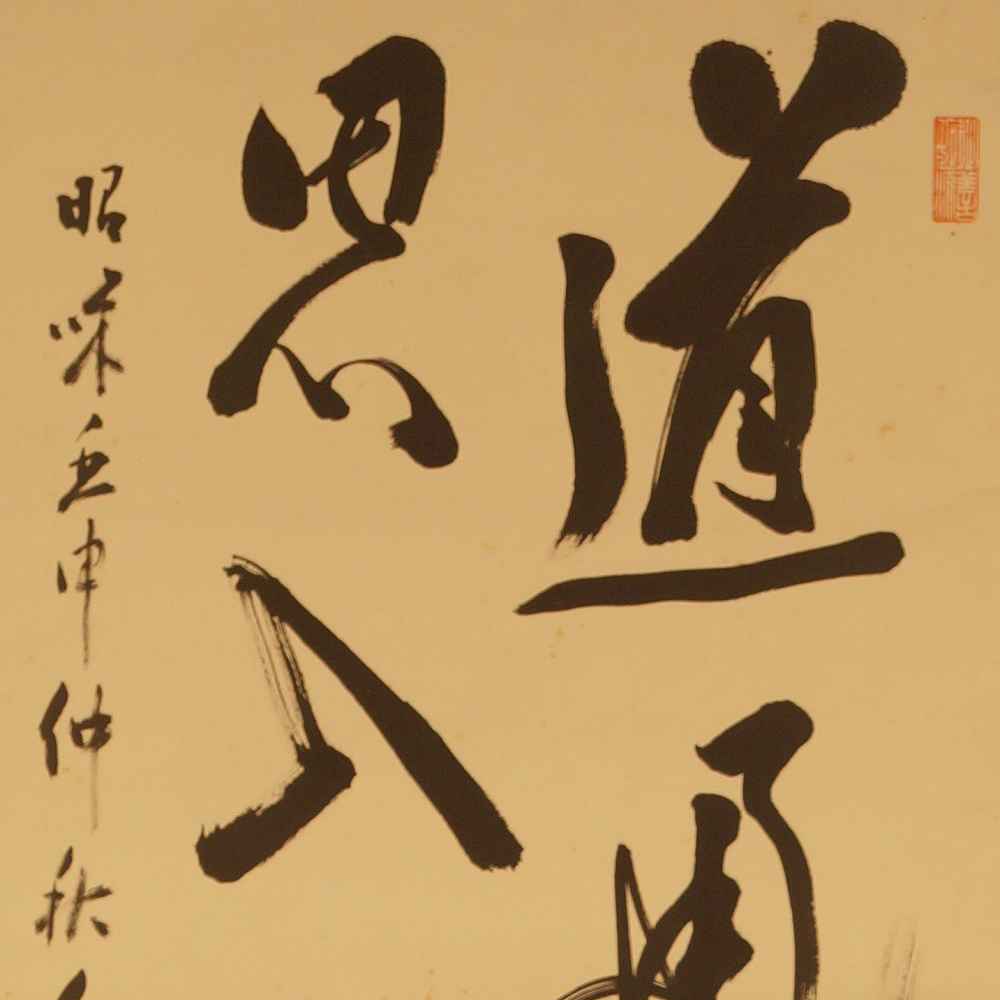 道通
思入
昭咊壬申仲秋